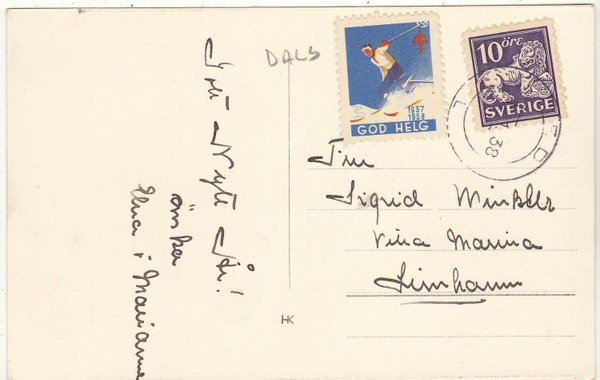 Gott Nytt År!
önskar
Elna & Marianne
DALS
1937
1938
GOD HELG
10 ÖRE
SVERIGE
38
Fru
Sigrid Winkler
Villa Marina
Limhamn
HK